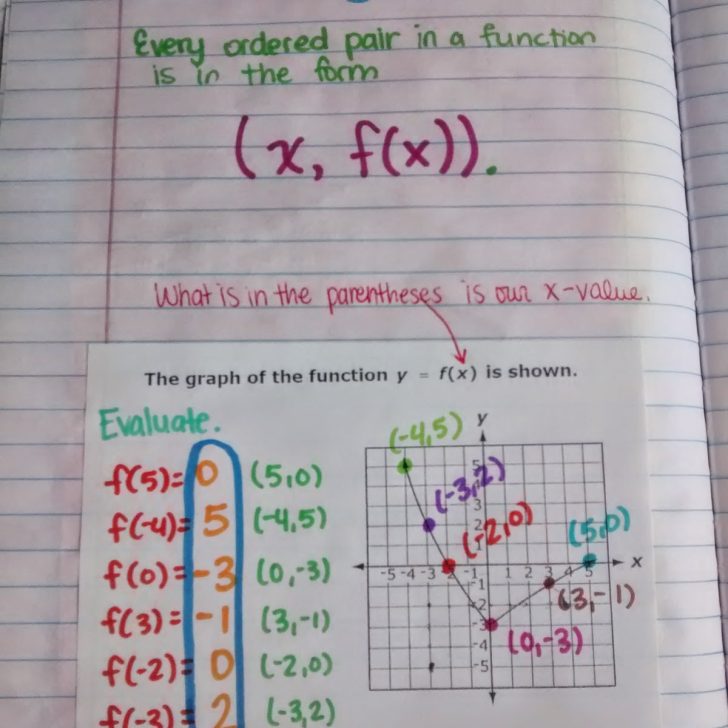 Every ordered pair in a function
is in the form
(x, f(x)).
What is in the parentheses is our x-value.
The graph of the function y = f(x) is shown.
Evaluate.
f(5)= 0 (5,0)
f(-4)= 5 (-4,5)
f(0)= -3 (0,-3)
f(3)= -1 (3,-1)
f(-2)= 0 (-2,0)
f(-3)= 2 (-3,2)
y
(-4,5)
5
(-3,2)
3
2
(-2,0)
1
(5,0)
x
-5 -4 -3 -2 -1 1 2 3 4 5
-1
(3,-1)
-2
-3
(0,-3)
-4
-5